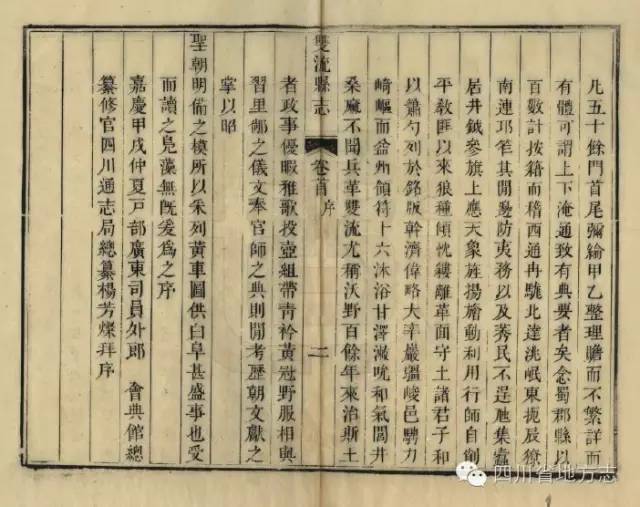 凡五十餘門首尾彌綸甲乙整理贍而不繁詳而
有體可謂上下淹通致有典要者矣念蜀郡縣以
百數計按籍而稽西通冉駹北達洮岷東扼辰獠
南連邛筰其閒邊防夷務以及莠民不逞虺集蠭
居井鉞參旗上應天象旌揚旝動利用行師自創
平教匪以來狼種傾忱䝤離革面守土諸君子和
以鸞勺列於銘版幹濟偉略大率嚴疆峻邑騁力
崎嶇而益州領符十六沐浴甘澤漱吮和氣閭井
桑麻不聞兵革雙流尤稱沃野百餘年來治斯土
者政事優暇雅歌投壺組帶青衿黃冠野服相與
習里鄉之儀文奉官師之典則閒考歷朝文獻之
寧以昭
聖朝明備之模所以采列黃車圖供白阜甚盛事也受
而讀之鳧藻無旣爰為之序
嘉慶甲戌仲夏戸部廣東司員外郎 會典館總
纂修官四川通志局總纂楊芳燦拜序
雙流縣志
卷首 序
二
四川省地方志